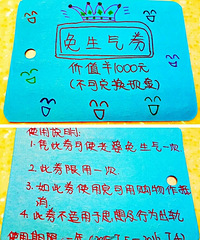 免生气券
价值半1000元
(不可兑换现金)
使用说明:
1. 凭此券可使老婆免生气一次
2. 此券限用一次
3. 如此券使用完可用购物作抵
消
4. 此券不适用于思想及行为出轨
使用期限:一年